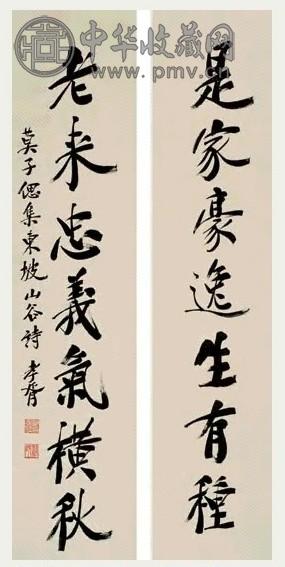 中华收藏网
www.pmv.cn
是家豪逸生有種
老来忠義氣橫秋
莫子偲集東坡山谷詩 孝胥